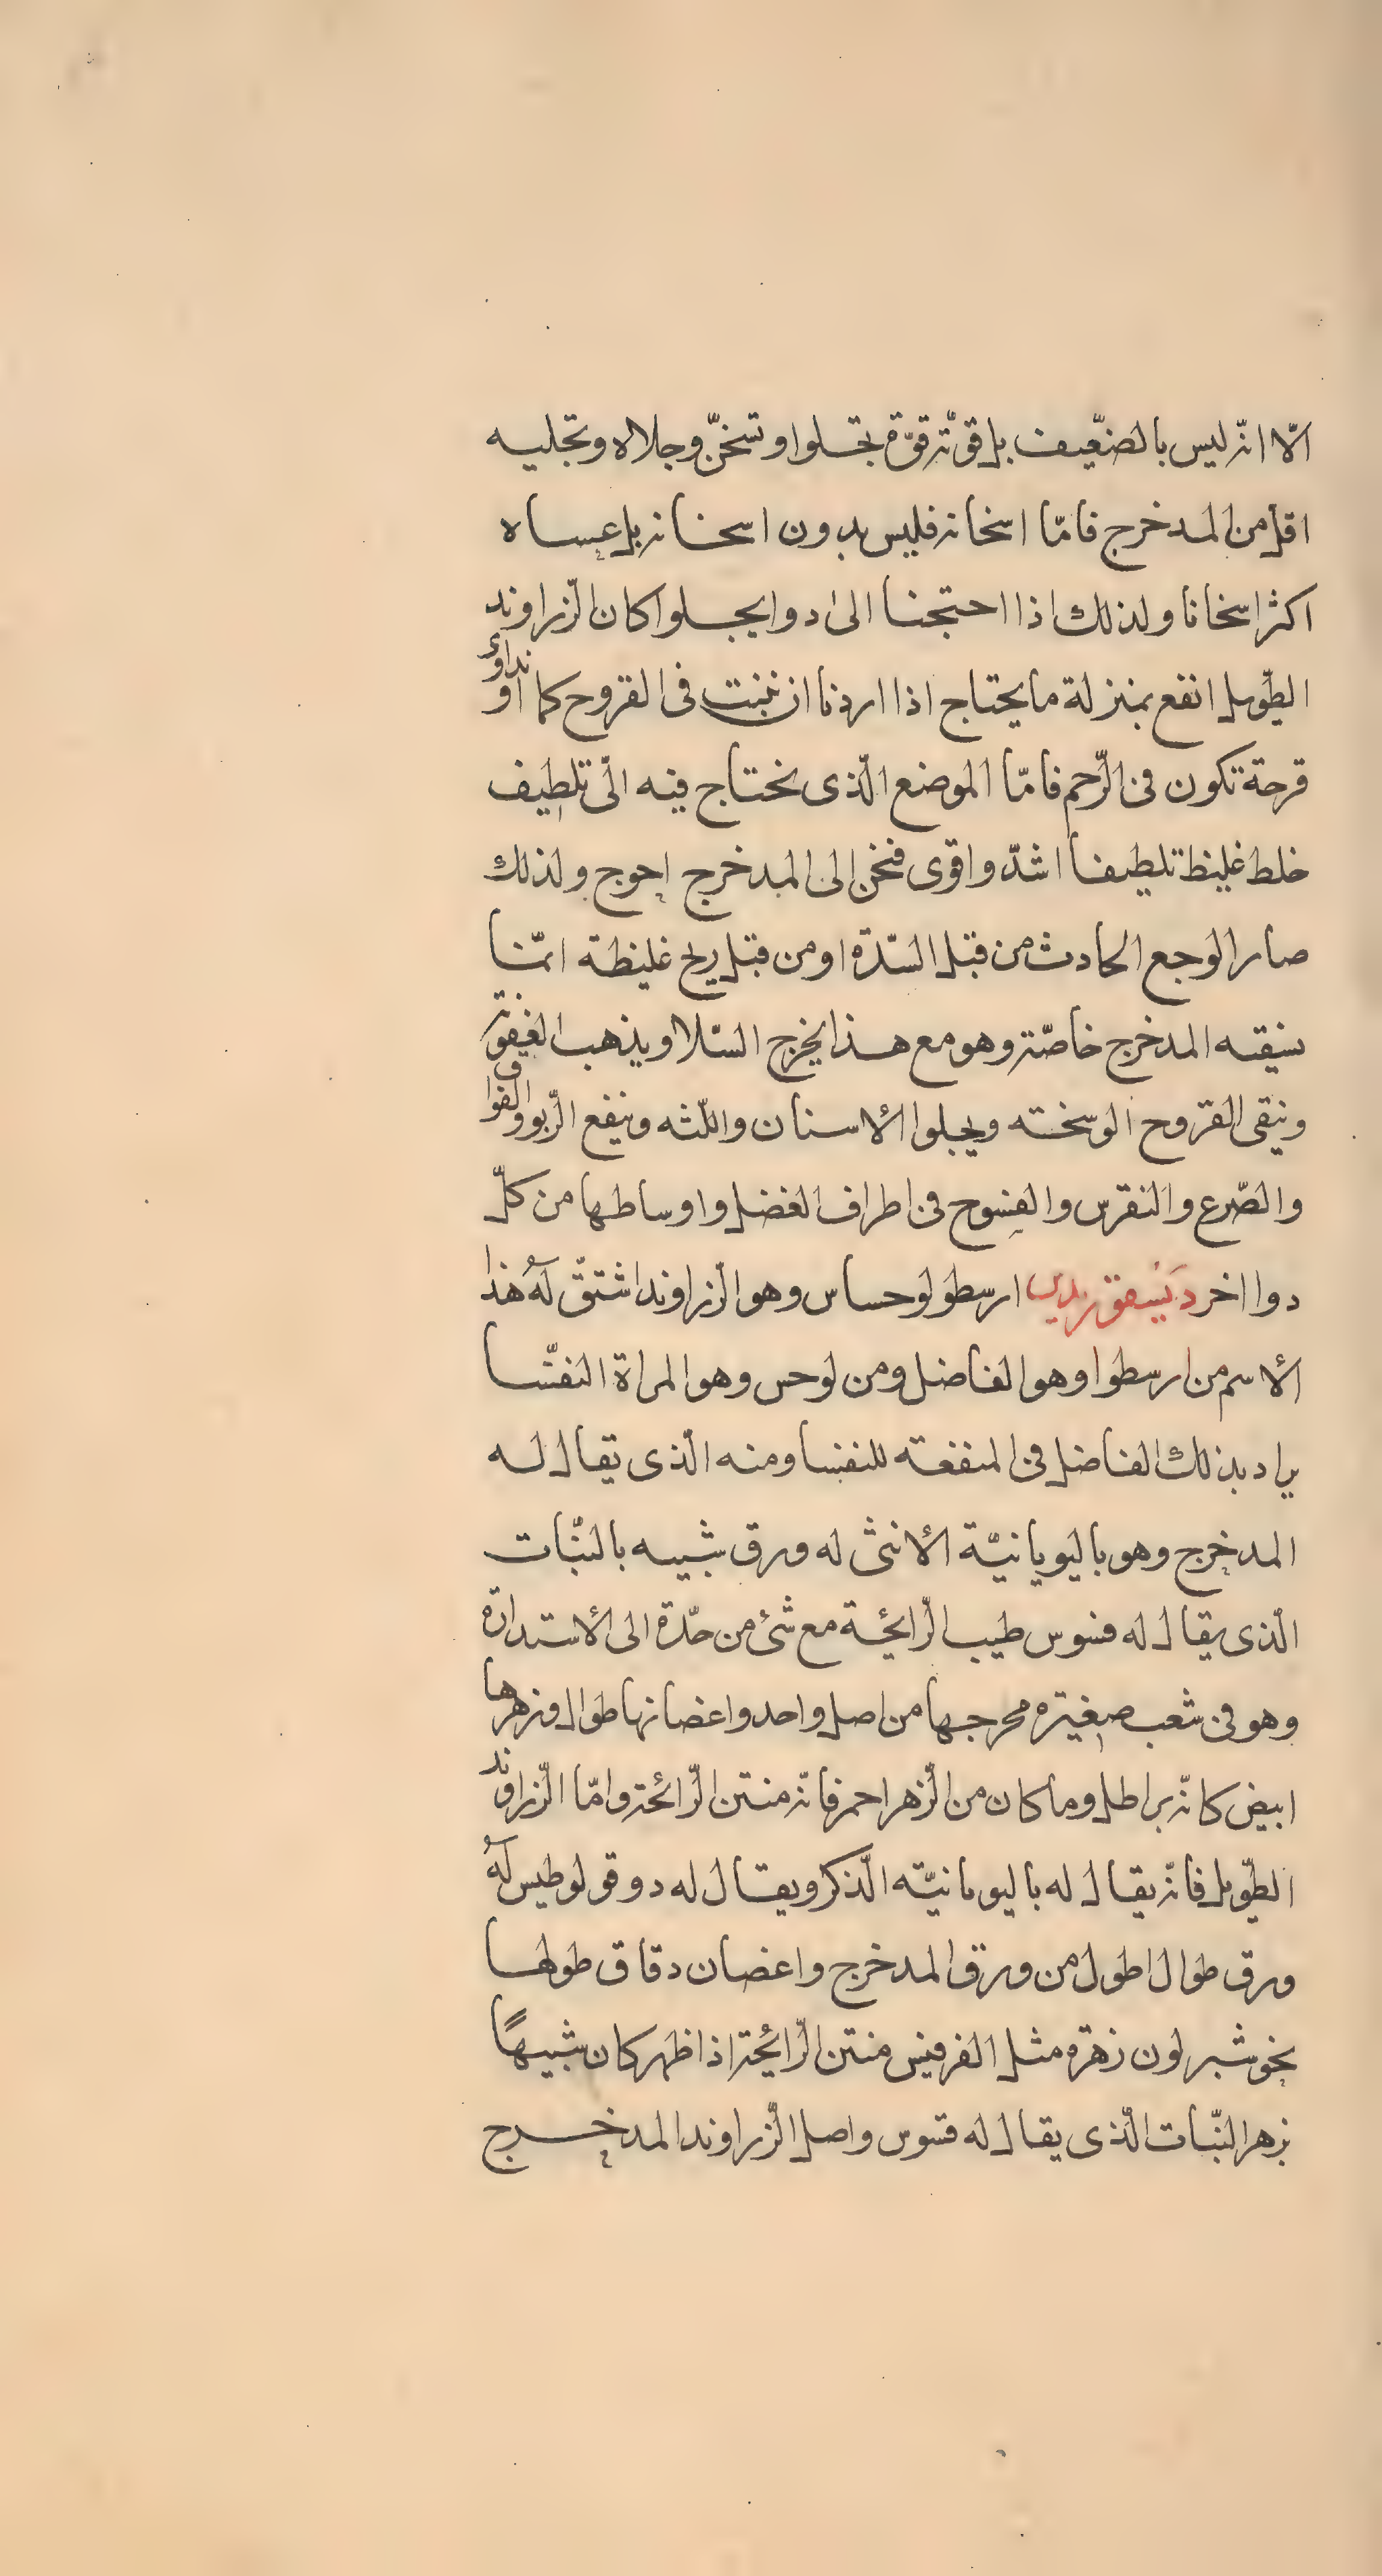 الّا انّه ليس بالضّعيف بل قوّته قوّة تجلوا وتسخّن وجلاله وتجليه
اقل من المدخرج فامّا اسخانه فليس بدون اسخانه بل عساه
اكثر اسخانا ولذلك اذا احتجنا الى دوا يجلوا كان الزّراوند
الطّويل انفع بمنزلة ما يحتاج اذا اردنا ان ننبت فى القروح كما نداوى او
قرحة تكون فى الرّحم فامّا الموضع الّذى نحتاج فيه الى تلطيف
خلط غليظ تلطيفا اشدّ واقوى فنحن الى المدخرج احوج ولذلك
صار الوجع الحادث من قبل السّدّة او من قبل ريح غليظة انّما
نسقيه المدخرج خاصّة وهو مع هذا يخرج السّلا ويذهب العفونة
وينقى القروح الوسخته ويجلوا الأسنان واللّثه وينفع الرّبو والفواق
والصّرع والنقرس والفسوح فى اطراف العضل واوساطها من كلّ
دوا اخر ديسقوريدس ارسطولوحساس وهو الزّراوند اشتقّ له هذا
الأسم من ارسطوا وهو الفاضل ومن لوحس وهو المراة النفّسا
يراد بذلك الفاضل فى المنفعته للنفسا ومنه الّذى يقال له
المدخرج وهو باليويانيّة الأنثى له ورق شبيه بالنبّات
الّذى يقال له قسوس طيب الرّايحة مع شئ من حدّة الى الأستدارة
وهو فى شعب صغيره مخرجها من اصل واحد واغصانها طوال وزهرها
ابيض كانّه براطل وما كان من الزّهر احمر فانّه منتن الرّائحته وامّا الزّراوند
الطّويل فانّه يقال له باليويانيّه الّذكر ويقال له دوقولوطيس له
ورق طوال اطول من ورق المدخرج واغصان دقاق طولها
نحو شبر لون زهره مثل الفرفيس منتن الرّايحته اذا ظهر كان شبيهًا
بزهر النبّات الّذى يقال له قسوس واصل الزّراوند المدخرج